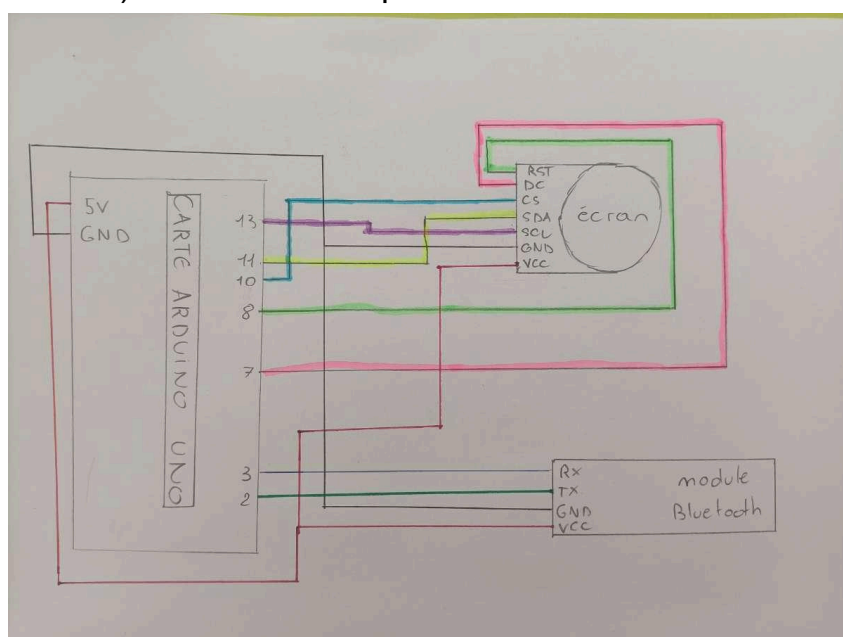 5V
GND
CARTE ARDUINO UNO
13
11
10
8
7
3
2
RST
DC
CS
SDA
SCL
GND
VCC
écran
RX
TX
GND
VCC
module
Bluetooth